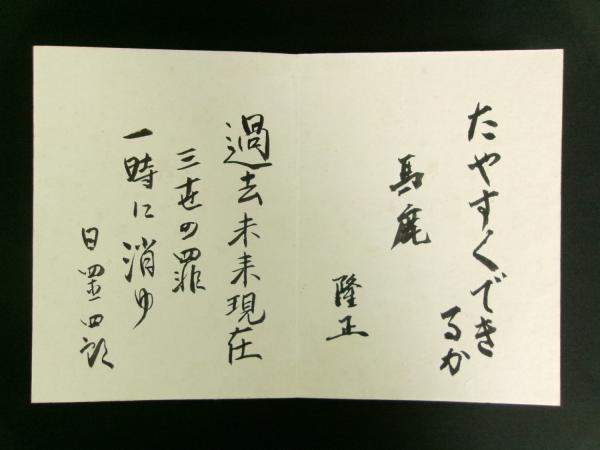 たやすくでき
るか
馬鹿
隆正
過去未来現在
三世の罪
一時に消ゆ